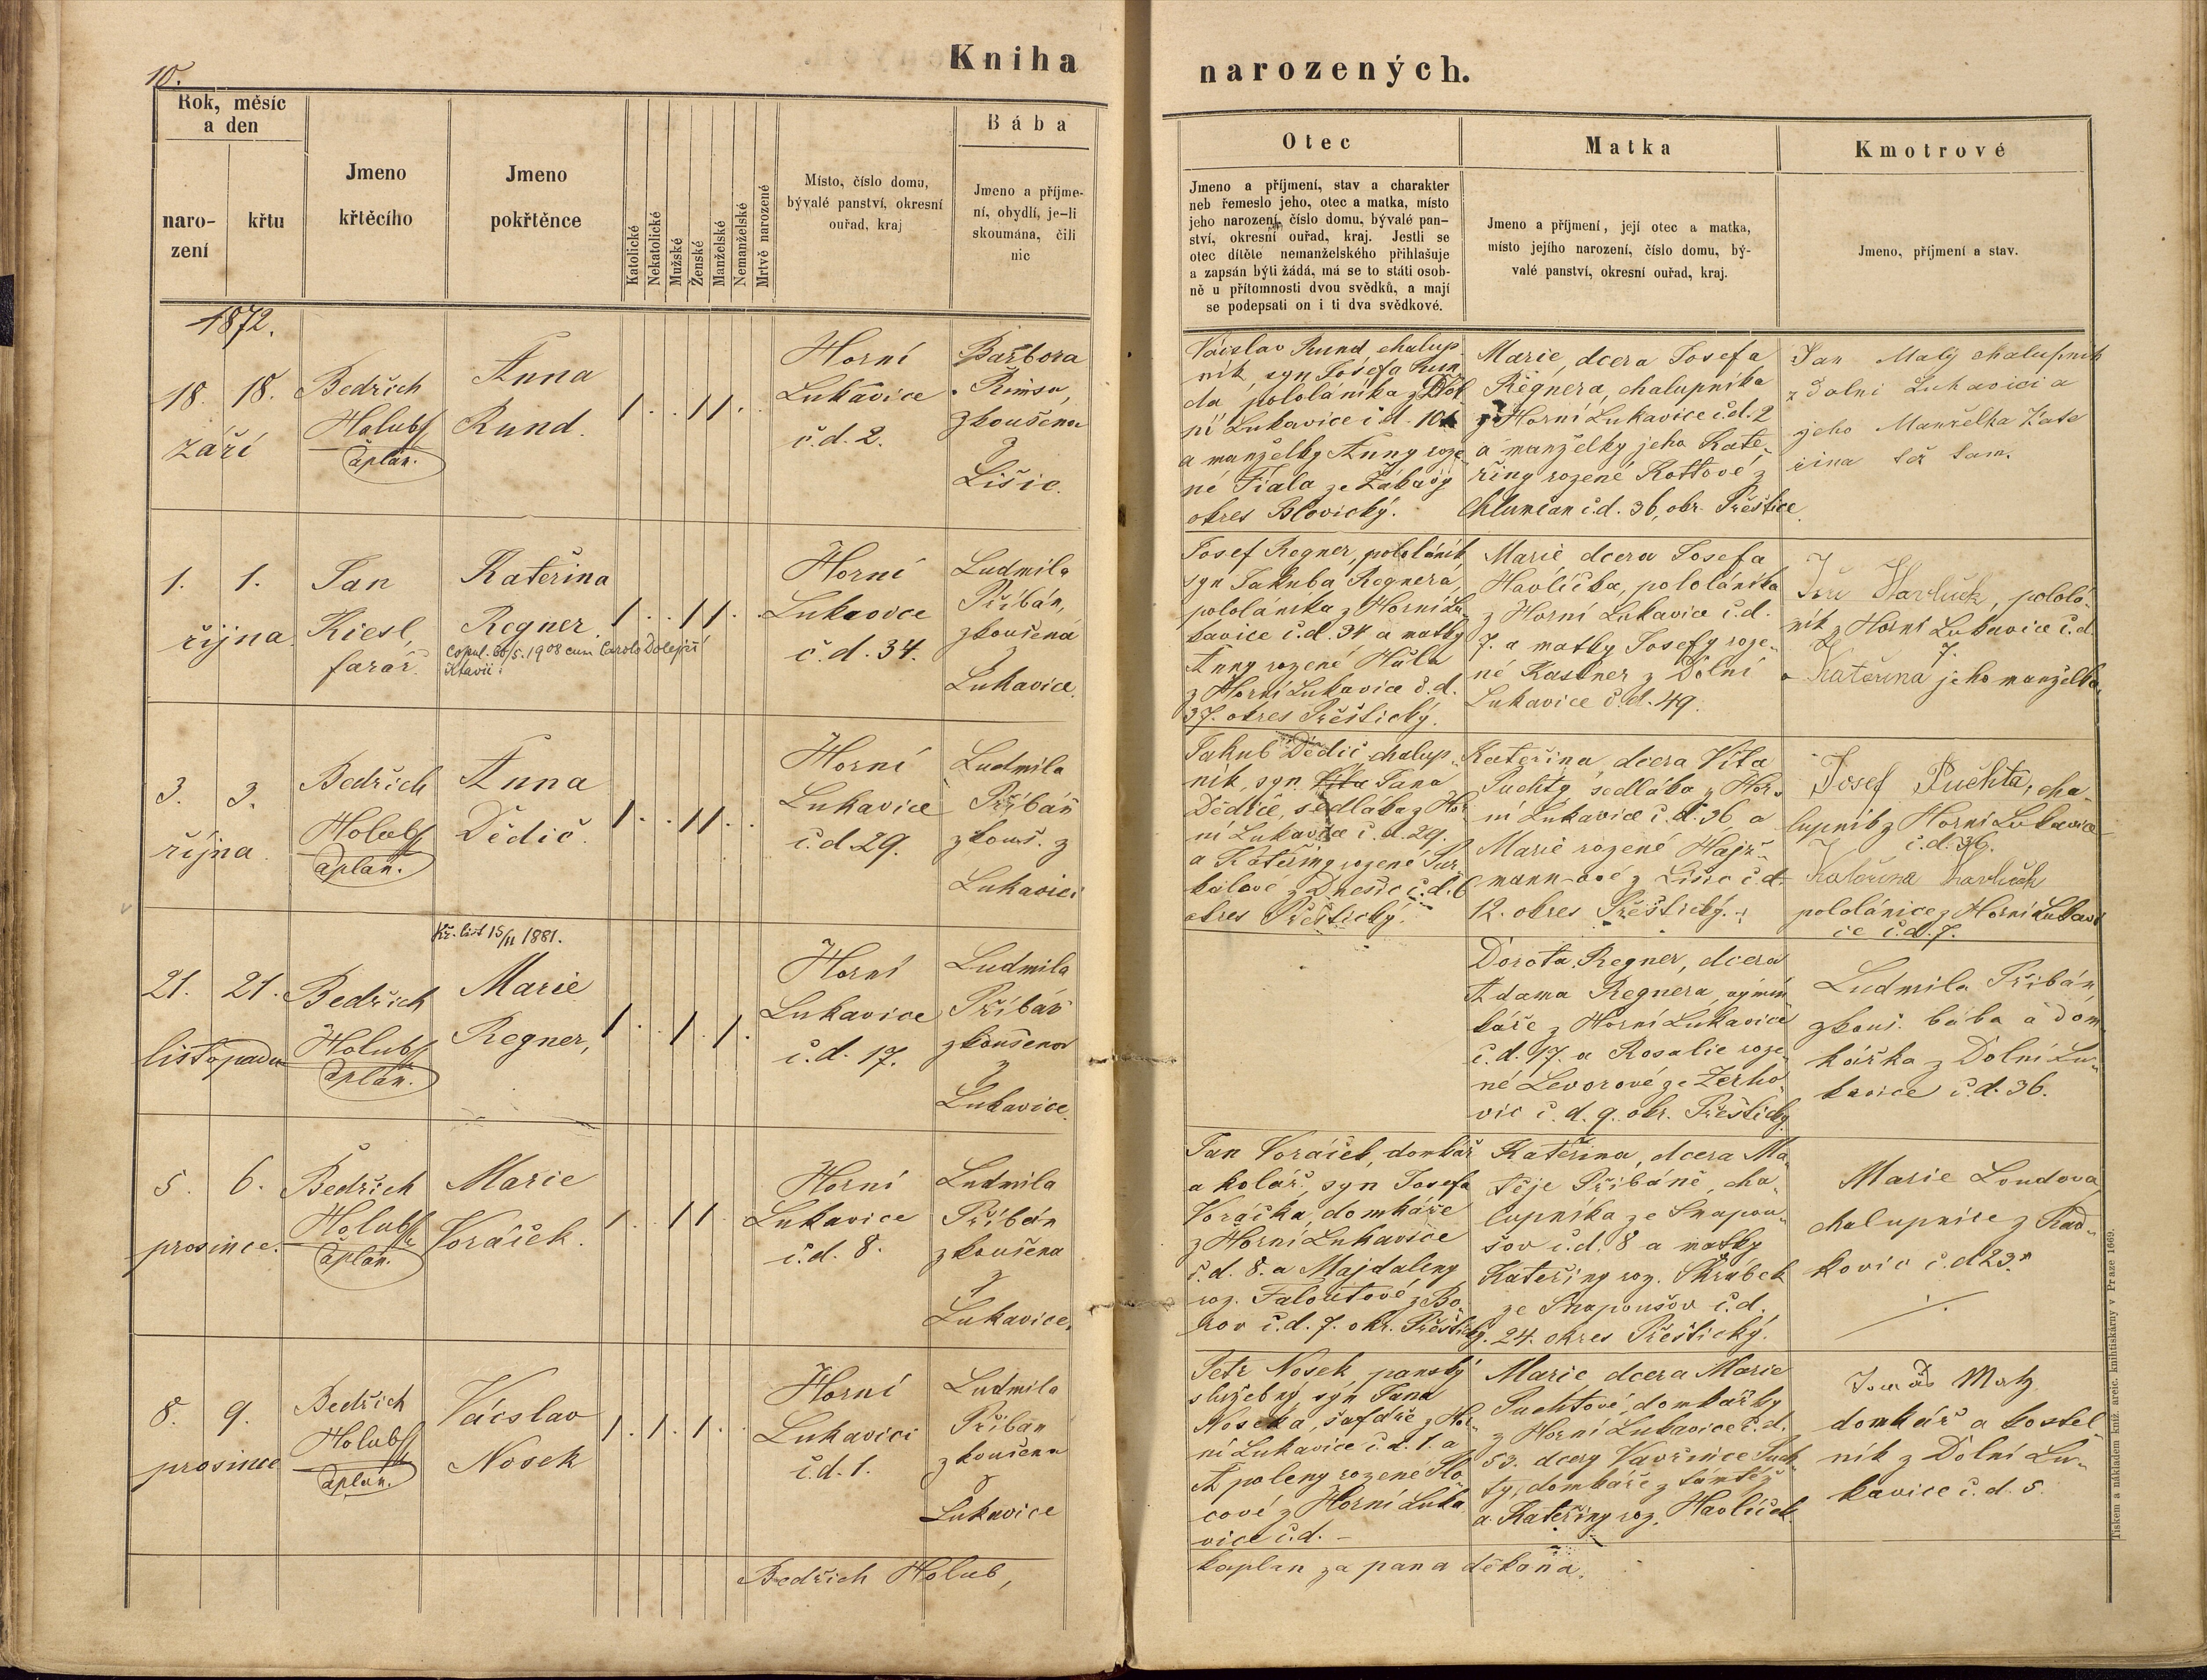 10.
Kniha
narozených.
Rok, měsíc
a den
naro-
zení
křtu
Jmeno
křtěcího
Jmeno
pokřtěnce
Katolické
Nekatolické
Mužské
Ženské
Manželské
Nemanželské
Mrtvě narozené
Místo, číslo domu,
bývalé panství, okresní
ouřad, kraj
Bába
Jmeno a příjme-
ní, obydlí, je-li
skoumána, čili
nic
Otec
Jmeno a příjmení, stav a charakter
neb řemeslo jeho, otec a matka, místo
jeho narození, číslo domu, bývalé pan-
ství, okresní ouřad, kraj. Jestli se
otec dítěte nemanželského přihlašuje
a zapsán býti žádá, má se to státi osob-
ně u přítomnosti dvou svědků, a mají
se podepsati on i ti dva svědkové.
Matka
Jmeno a příjmení, její otec a matka,
místo jejího narození, číslo domu, bý-
valé panství, okresní ouřad, kraj.
Kmotrové
Jmeno, příjmení a stav.
1872.
18. 18.
září
Bedřich
Holub
caplan.
Anna
Rund.
Horní
Lukavice
č.d. 2.
Barbora
Rimsa,
zkoušena
z
Lišic.
Václav Rund, chalup-
ník, syn Josefa Run-
da, pololáníka z Dol-
ní Lukavice č.d. 10
a manželky Anny roze-
né Fiala ze
okres Blovický.
Marie, dcera Josefa
Regnera, chalupníka
z Horní Lukavice č.d. 2
a manželky jeho Kate-
řiny rozené Kottové z
Chlumčan č.d. 36, okr. Přeštice.
Jan Malý chalupník
z Dolní Lukavici a
jeho Manželka Kate
řina
1. 1.
října
Jan
Kiesl,
farář.
Kateřina
Regner.
Copul. /5. 1908 cum Carolo Dolejší
Horní
Lukavice
č.d. 34.
Ludmila
Přibáň,
zkoušena
z
Lukavice.
Josef Regner, pololáník,
syn Jakuba Regnera
pololáníka z Horní Lu-
kavice č.d. 34 a matky
Anny rozené Hůla
z Horní Lukavice č.d.
37. okres Přeštický.
Marie dcera Josefa
Havlíčka, pololáníka
z Horní Lukavice č.d.
7. a matky Josefy roze-
né Kastner z Dolní
Lukavice č.d. 49.
Jiří Havlíček, pololá-
ník z Horní Lukavice č.d.
7.
a Kateřina jeho manželka
3. 3.
října
Bedřich
Holub
caplan.
Anna
Dědič.
Horní
Lukavice
č.d. 29.
Ludmila
Přibáň
zkouš. z
Lukavici
Jakub Dědič, chalup-
ník, syn Jana
Dědiče, sedláka z Hor-
ní Lukavice č.d. 29.
a Kateřiny rozené
z Dnešic č.d. 6
okres Přeštický.
Kateřina, dcera Víta
Puchty sedláka z Hor-
ní Lukavice č.d. 36 a
Marie rozené Hajž-
mann-ové z Lišic č.d.
12. okres Přeštický.
Josef Puchta, cha-
lupník z Horní Lukavice
č.d. 36.
Kateřina Havlíček
pololánice z Horní Lukavi
ce č.d. 7.
Kř. list 15/II 1881.
21. 21.
listopadu
Bedřich
Holub
caplan.
Marie
Regner,
Horní
Lukavice
č.d. 17.
Ludmila
Přibáň
zkoušena
z
Lukavice.
Dorota Regner, dcera
Adama Regnera, výmin-
káře z Horní Lukavice
č.d. 17. a Rosalie roze-
né Levorové ze Zerho-
vic č.d. 9. okr. Přeštický
Ludmila Přibáň,
zkouš. bába a dom-
kářka z Dolní Lu-
kavice č.d. 36.
5. 6.
prosince.
Bedřich
Holub
caplan.
Marie
Voráček.
Horní
Lukavice
č.d. 8.
Ludmila
Přibáň
zkoušena
z
Lukavice.
Jan Voráček, domkář
a kolář, syn Josefa
Voráčka, domkáře
z Horní Lukavice
č.d. 8. a Majdaleny
roz. Faloutové z Bo-
rov č.d. 7. okr. Přeštický.
Kateřina, dcera Ma-
těje Přibáně, cha-
lupníka ze Snopou-
šov č.d. 8 a matky
Kateřiny roz. Škrabek
ze Snopoušov č.d.
24. okres Přeštický.
Marie Loudova
chalupnice z Rad-
kovic č.d 23.
8. 9.
prosince
Bedřich
Holub
caplan.
Václav
Nosek
Horní
Lukavici
č.d. 1.
Ludmila
Přibáň
zkoušena
z
Lukavice
Petr Nosek, panský
služebný, syn Jana
Noseka, šafáře z Hor-
ní Lukavice č.d. 1. a
Apoleny rozené
cové z Horní Luka
vice č.d. –
Marie dcera Marie
Puchtové, domkářky
z Horní Lukavice č.d.
53. dcery Vavřince Puch-
ty, domkáře z tamtéž
a Kateřiny roz. Havlíček.
Tomáš Matz
domkář a kostel
ník z Dolní Lu-
kavice č.d. 5.
Bedřich Holub,
kaplan za pana děkana.
Tiskem a nákladem kníž. arcib. knihtiskárny v Praze 1669.